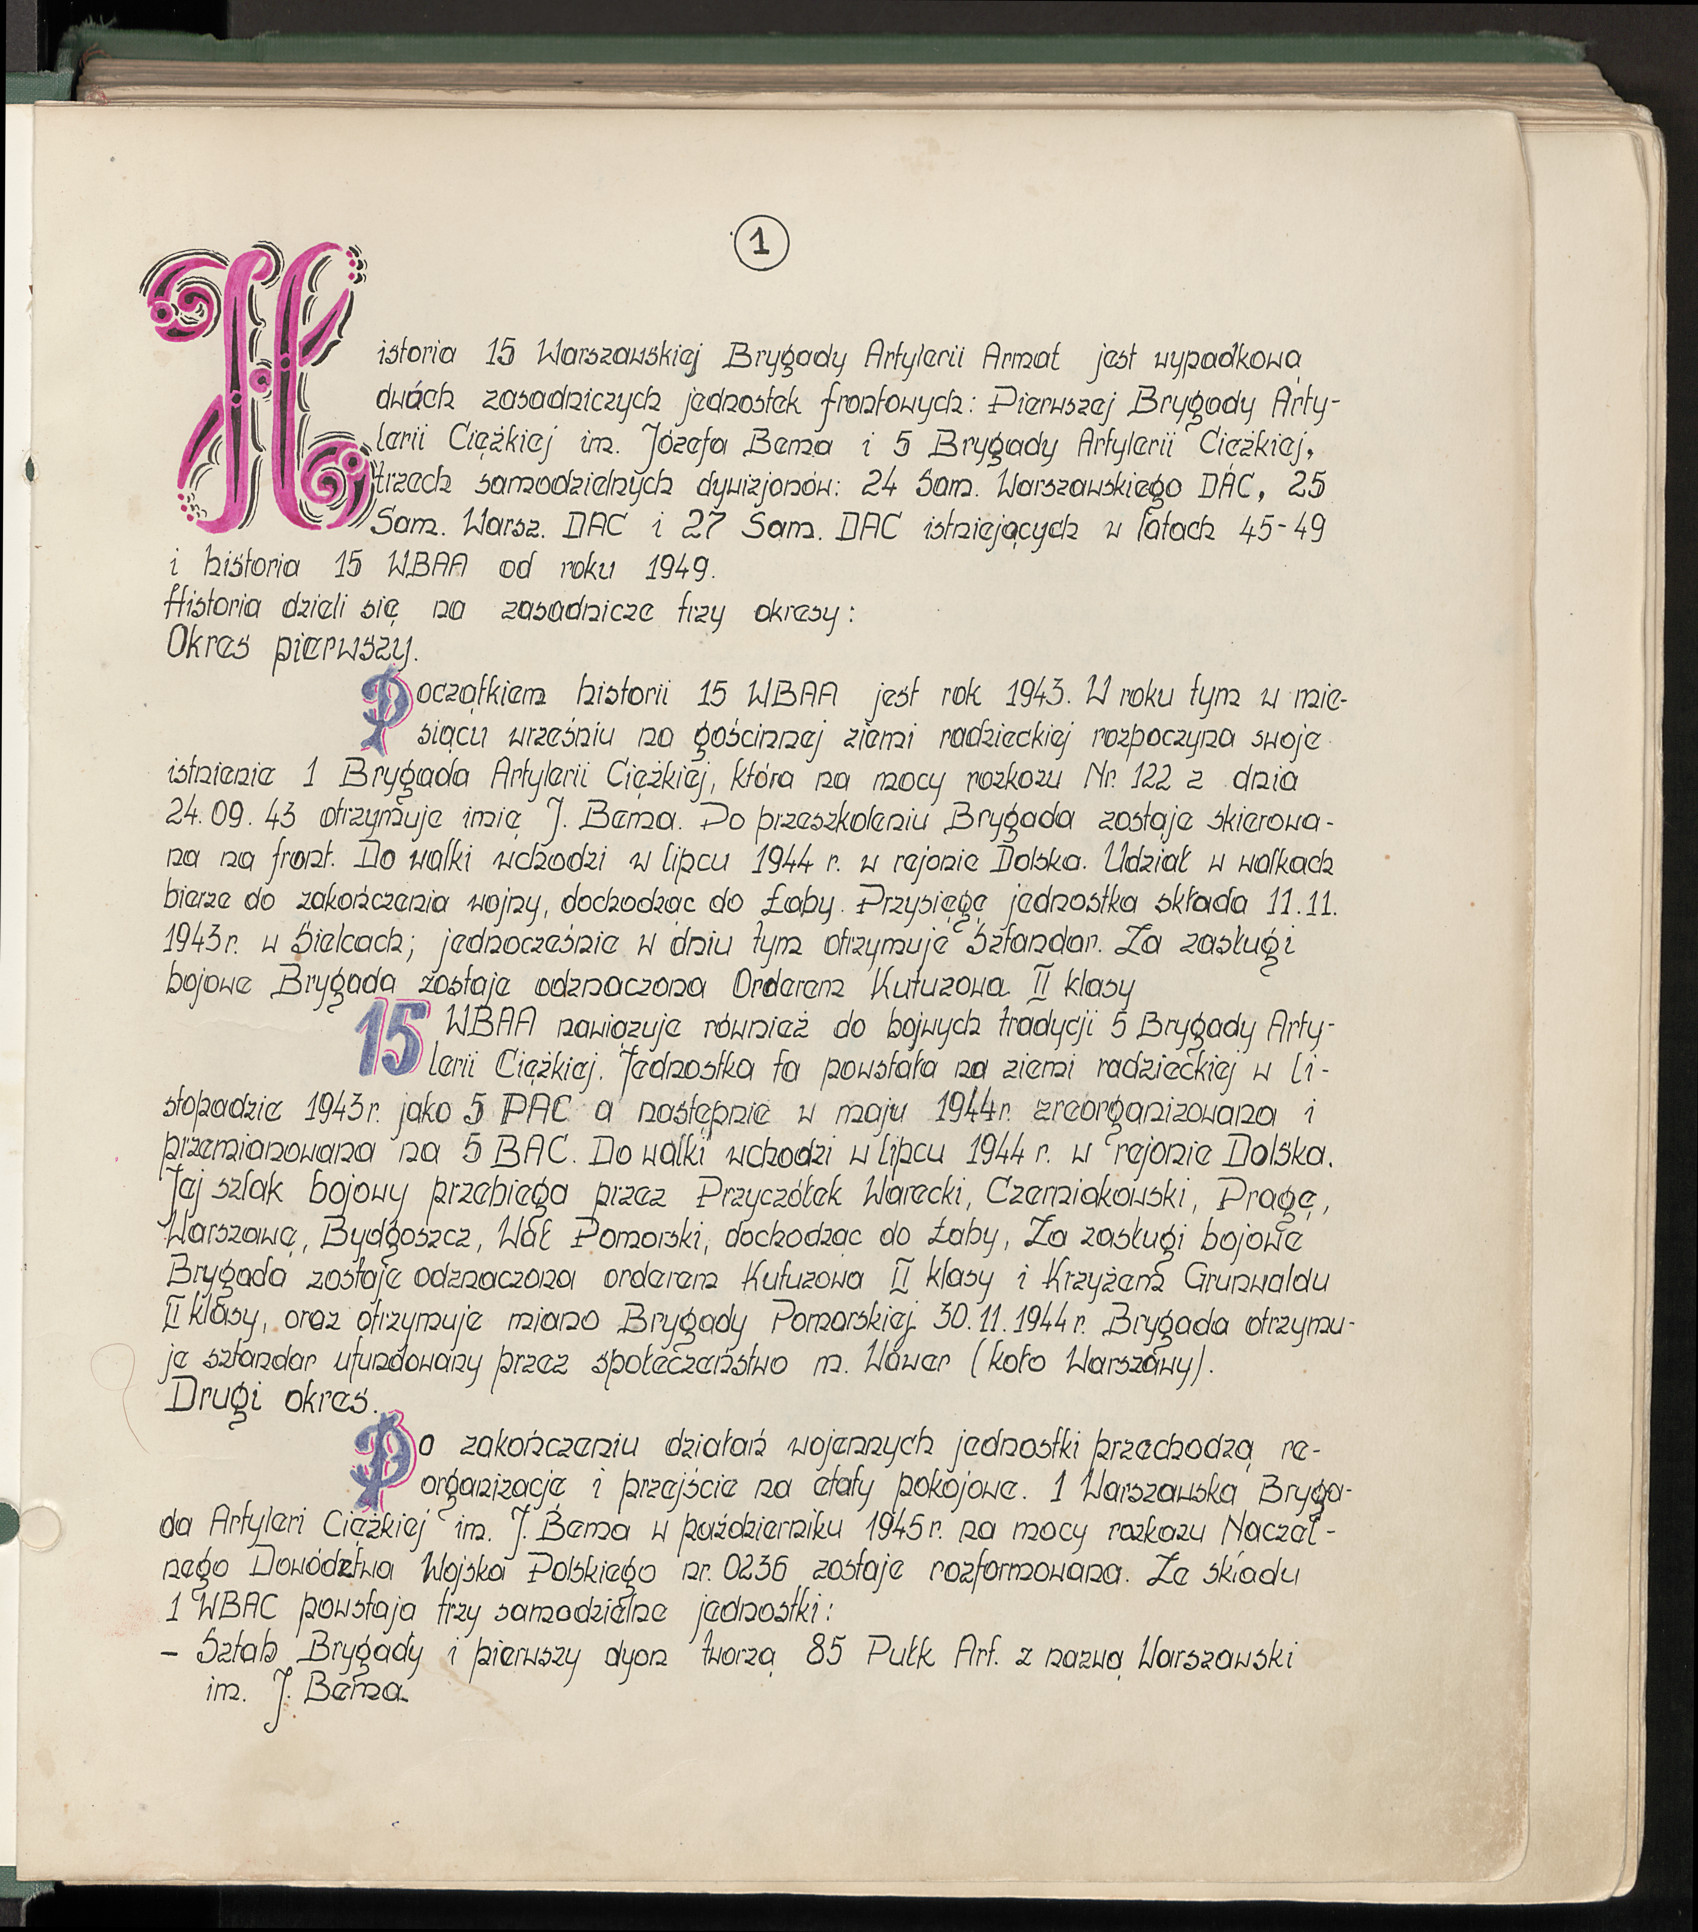 1
Historia 15 Warszawskiej Brygady Artylerii Armat jest wypadkową
dwóch zasadniczych jednostek frontowych: Pierwszej Brygady Arty-
lerii Ciężkiej im. Józefa Bema i 5 Brygady Artylerii Ciężkiej,
trzech samodzielnych dywizjonów: 24 Sam. Warszawskiego DAC, 25
Sam. Warsz. DAC i 27 Sam. DAC istniejących w latach 45-49
i historia 15 WBAA od roku 1949.
Historia dzieli się na zasadnicze trzy okresy:
Okres pierwszy.
Początkiem historii 15 WBAA jest rok 1943. W roku tym w mie-
siącu wrześniu na gościnnej ziemi radzieckiej rozpoczyna swoje
istnienie 1 Brygada Artylerii Ciężkiej, która na mocy rozkazu Nr. 122 z dnia
24.09.43 otrzymuje imię J. Bema. Po przeszkoleniu Brygada zostaje skierowa-
na na front. Do walki wchodzi w lipcu 1944 r. w rejonie Dolska. Udział w walkach
bierze do zakończenia wojny, dochodząc do Łaby. Przysięgę jednostka składa 11.11.
1943 r. w Sielcach; jednocześnie w dniu tym otrzymuje Sztandar. Za zasługi
bojowe Brygada zostaje odznaczona Orderem Kutuzowa II klasy
15 WBAA nawiązuje również do bojwych tradycji 5 Brygady Arty-
lerii Ciężkiej. Jednostka ta powstała na ziemi radzieckiej w li-
stopadzie 1943 r. jako 5 PAC a następnie w maju 1944 r. zreorganizowana i
przemianowana na 5 BAC. Do walki wchodzi w lipcu 1944 r. w rejonie Dolska.
Jej szlak bojowy przebiega przez Przyczółek Warecki, Czerniakowski, Pragę,
Warszawę, Bydgoszcz, Wał Pomorski, dochodząc do Łaby, Za zasługi bojowe
Brygada zostaje odznaczona orderem Kutuzowa II klasy i Krzyżem Grunwaldu
II klasy, oraz otrzymuje miano Brygady Pomorskiej. 30.11.1944 r. Brygada otrzymu-
je sztandar ufundowany przez społeczeństwo m. Wawer (koło Warszawy).
Drugi okres.
Po zakończeniu działań wojennych jednostki przechodzą re-
organizację i przejście na etaty pokojowe. 1 Warszawska Bryga-
da Artyleri Ciężkiej im. J. Bema w październiku 1945 r. na mocy rozkazu Naczel-
nego Dowództwa Wojska Polskiego nr. 0236 zostaje rozformowana. Ze składu
1 WBAC powstają trzy samodzielne jednostki:
- Sztab Brygady i pierwszy dyon tworzą 85 Pułk Art. z nazwą Warszawski
im. J. Bema.